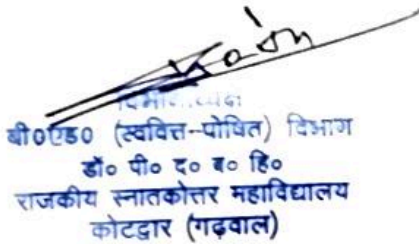 विभागाध्यक्ष
बी०एड० (स्ववित्त-पोषित) विभाग
डॉ० पी० द० ब० हि०
राजकीय स्नातकोत्तर महाविद्यालय
कोटद्वार (गढ़वाल)